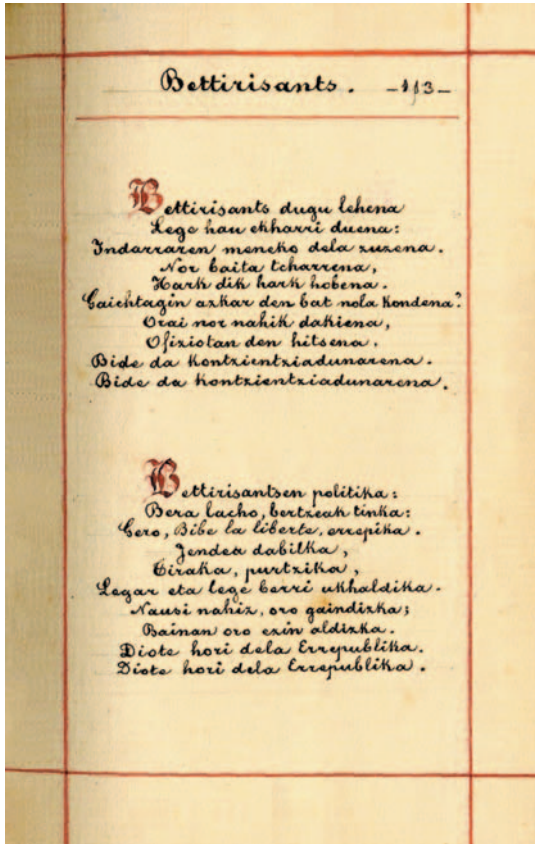 Bettirisants. -113-
Bettirisants dugu lehena
Lege hau ekharri duena:
Indarraren meneko dela zuzena.
Nor baita tcharrena,
Hark dik hark hobena.
Gaichtagin azkar den bat nola kondena?
Orai nor nahik dakiena,
Ofiziotan den hitsena,
Bide da kontzientziadunarena.
Bide da kontzientziadunarena.
Bettirisantsen politika:
Bera lacho, bertzeak tinka:
Gero, Bibe la liberte, errepika.
Jendea dabilka,
Tiraka, purtzika,
Legar eta lege berri ukhaldika.
Nausi nahiz, oro gaindizka;
Bainan oro ezin aldizka.
Diote hori dela Errepublika.
Diote hori dela Errepublika.